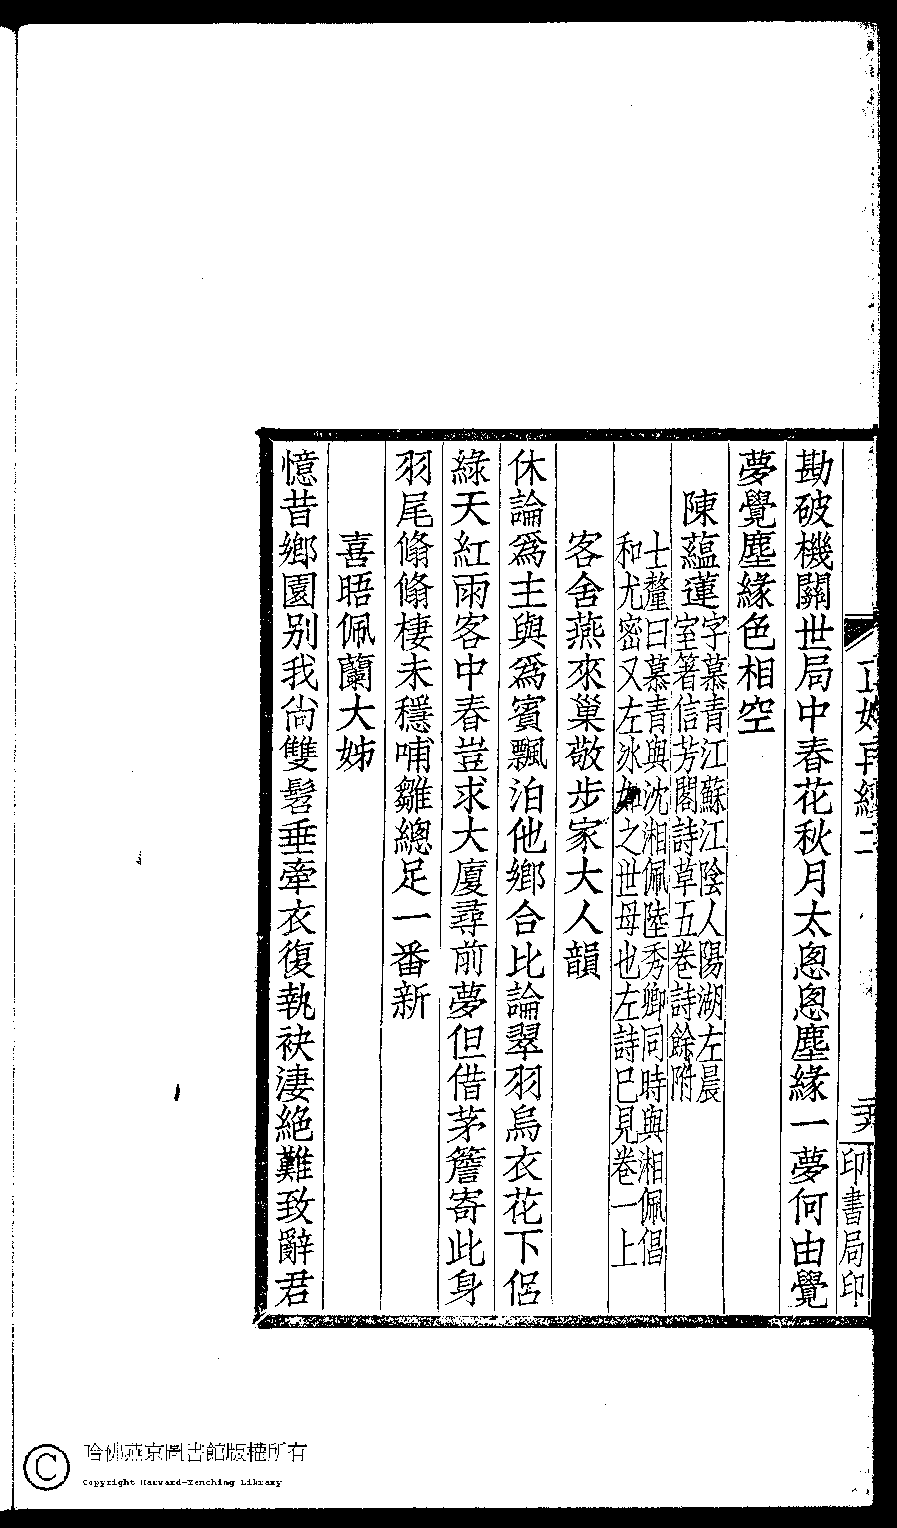 正始再續二
印書局印
勘破機關世局中春花秋月太悤悤塵緣一夢何由覺
夢覺塵緣色相空
陳蘊蓮字慕青江蘇江陰人陽湖左晨
室箸信芳閣詩草五卷詩餘附
士釐曰慕青與沈湘佩陸秀卿同時與湘佩倡
和尤密又左冰如之世母也左詩已見卷一上
客舍燕來巢敬步家大人韻
休論爲主與爲賓飄泊他鄉合比論翠羽烏衣花下侶
綠天紅雨客中春豈求大廈尋前夢但借茅簷寄此身
羽尾翛翛棲未穩哺雛總足一番新
喜晤佩蘭大姊
憶昔鄉園別我尙雙髫垂牽衣復執袂淒絕難致辭君
哈佛燕京圖書館版權所有
Copyright Harvard-Yenching Library